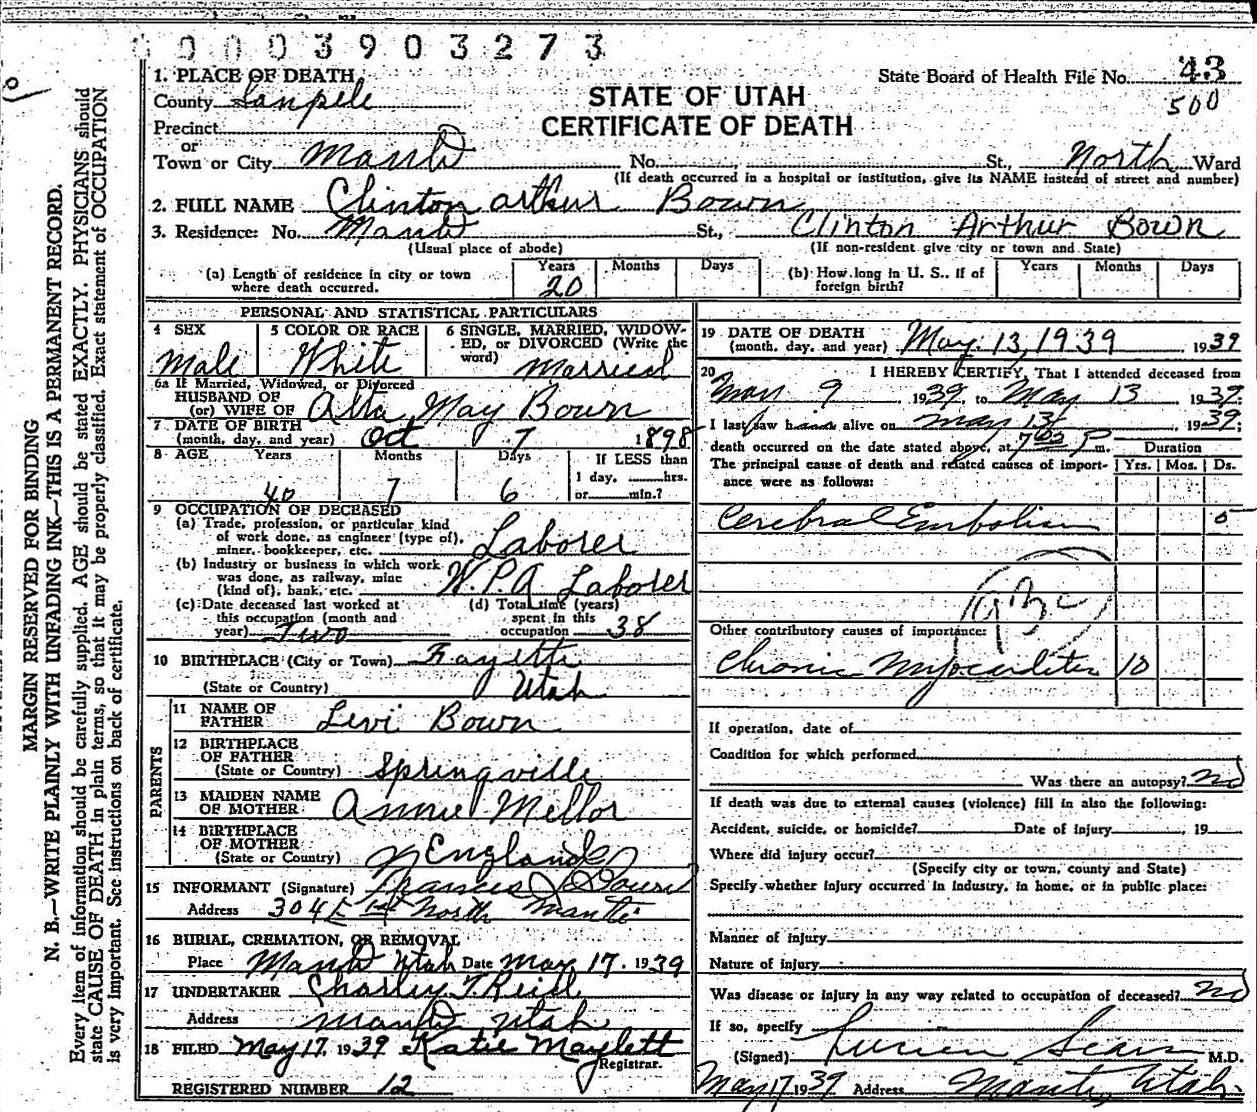 0 0 0 0 3 9 0 3 2 7 3
State Board of Health File No. 43
500
STATE OF UTAH
CERTIFICATE OF DEATH
1. PLACE OF DEATH
County Sanpete
Precinct
or
Town or City Manti No. St., North Ward
(If death occurred in a hospital or institution, give its NAME instead of street and number)
2. FULL NAME Clinton Arthur Bown
3. Residence: No. Manti St., Clinton Arthur Bown
(Usual place of abode) (If non-resident give city or town and State)
(a) Length of residence in city or town where death occurred. Years 20 Months Days
(b) How long in U. S., if of foreign birth? Years Months Days
MARGIN RESERVED FOR BINDING
N. B.—WRITE PLAINLY WITH UNFADING INK—THIS IS A PERMANENT RECORD.
Every item of information should be carefully supplied. AGE should be stated EXACTLY. PHYSICIANS should
state CAUSE OF DEATH in plain terms, so that it may be properly classified. Exact statement of OCCUPATION
is very important. See instructions on back of certificate.
PERSONAL AND STATISTICAL PARTICULARS
4 SEX Male
5 COLOR OR RACE White
6 SINGLE, MARRIED, WIDOWED, or DIVORCED (Write the word) Married
6a If Married, Widowed, or Divorced
HUSBAND OF
(or) WIFE OF Alta May Bown
7 DATE OF BIRTH
(month, day, and year) Oct 7 1898
8 AGE Years 40 Months 7 Days 6 If LESS than 1 day, hrs. or min.?
9 OCCUPATION OF DECEASED
(a) Trade, profession, or particular kind
of work done, as engineer (type of),
miner, bookkeeper, etc. Laborer
(b) Industry or business in which work
was done, as railway, mine
(kind of), bank, etc. W.P.A Laborer
(c) Date deceased last worked at
this occupation (month and
year) Two
(d) Total time (years)
spent in this
occupation 38
10 BIRTHPLACE (City or Town) Fayette
(State or Country) Utah
PARENTS
11 NAME OF FATHER Levi Bown
12 BIRTHPLACE OF FATHER
(State or Country) Springville
13 MAIDEN NAME OF MOTHER Annie Mellor
14 BIRTHPLACE OF MOTHER
(State or Country) England
15 INFORMANT (Signature) Frances
Address 304 E 1st North Manti
16 BURIAL, CREMATION, OR REMOVAL
Place Manti Utah Date May 17, 1939
17 UNDERTAKER Charley T. Reid
Address Manti Utah
18 FILED May 17, 1939 Katie Maylett
Registrar.
REGISTERED NUMBER 12
19 DATE OF DEATH
(month, day, and year) May 13, 1939 1939
20 I HEREBY CERTIFY, That I attended deceased from
9, 1939 to May 13 1939:
I last saw h alive on May 13, 1939;
death occurred on the date stated above, at P m.
Duration
The principal cause of death and related causes of importance were as follows: Yrs. Mos. Ds.
Cerebral Embolism 5
Other contributory causes of importance:
Chronic Myocarditis 10
If operation, date of
Condition for which performed
Was there an autopsy? No
If death was due to external causes (violence) fill in also the following:
Accident, suicide, or homicide? Date of injury , 19
Where did injury occur?
(Specify city or town, county and State)
Specify whether injury occurred in industry, in home, or in public place:
Manner of injury
Nature of injury
Was disease or injury in any way related to occupation of deceased? No
If so, specify
(Signed) Lucien Sears M.D.
May 17 1939 Address Manti, Utah.